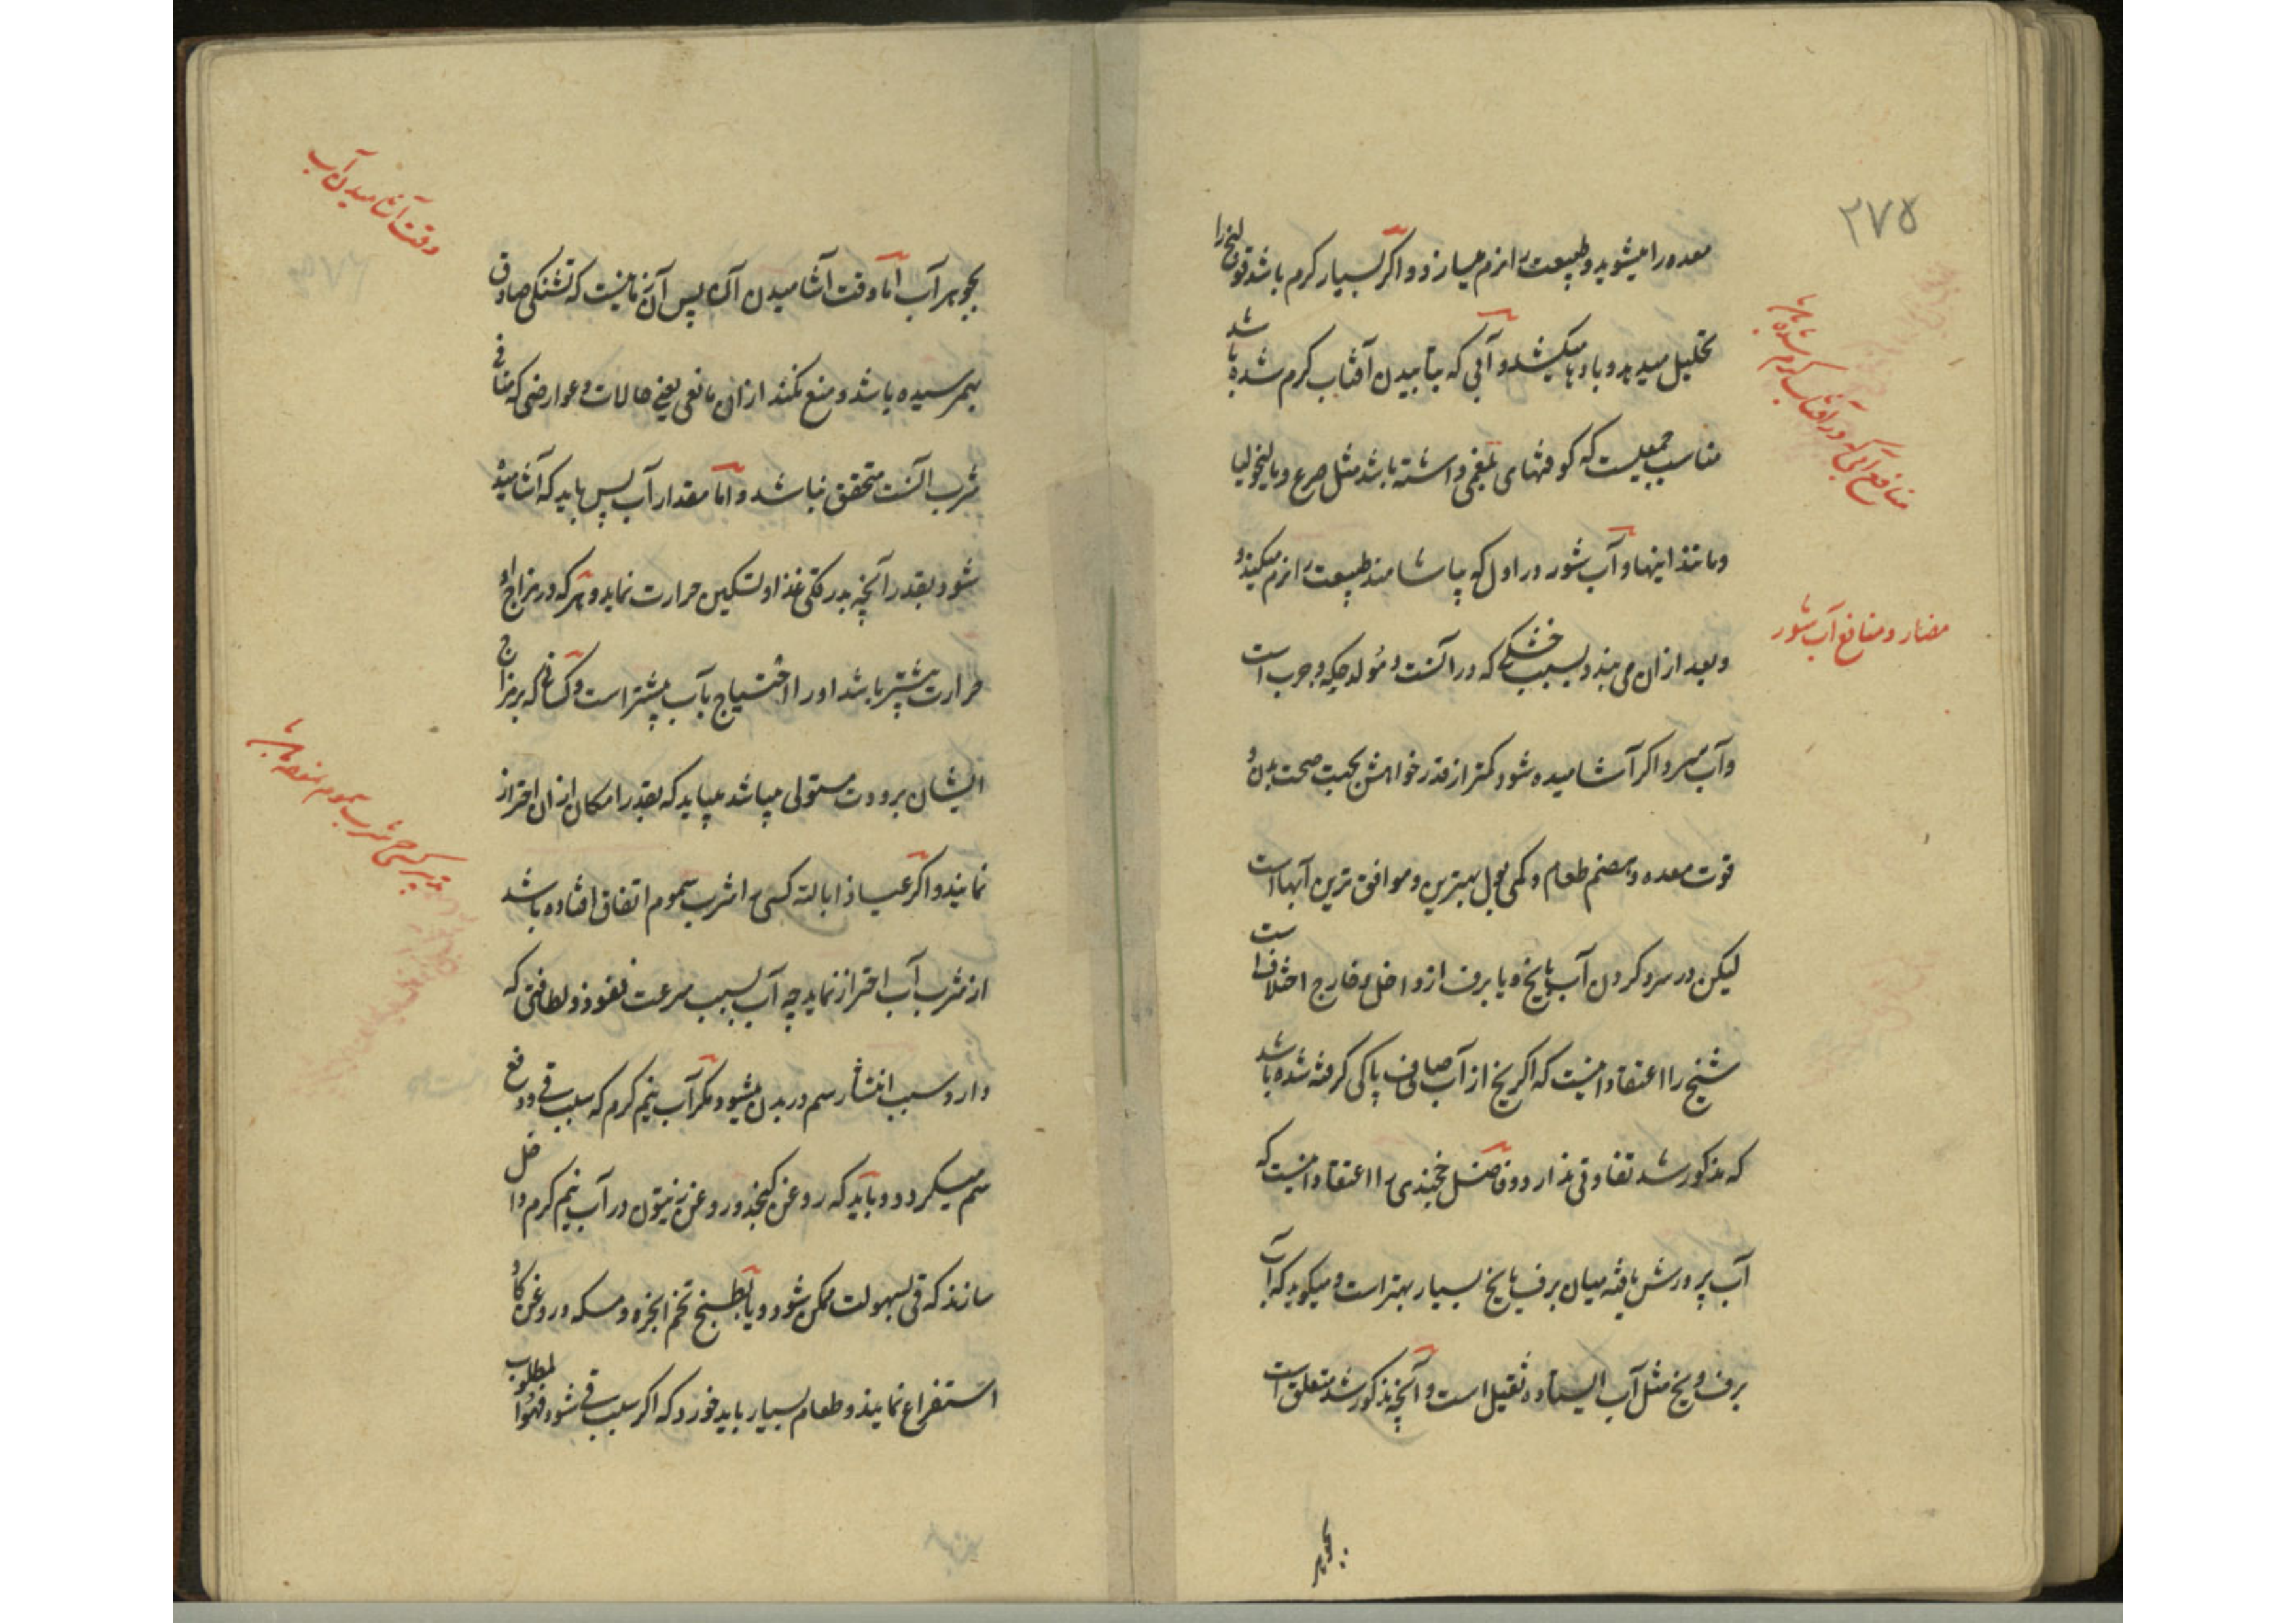 ۲۷۵
معده را میشوید و طبیعت را نرم میسازد و اگر بسیار گرم باشد قولنج را
تحلیل میدهد و بادها میکشد و آبی که بتابیدن آفتاب گرم شده باشد
مناسب جمعیست که کوفتهای بلغمی داشته باشد مثل صرع و مالیخولیا
و مانند اینها و آب شور در اول که بیاشامند طبیعت را نرم میکند و
و بعد از ان می بندد بسبب خشکی که در آنست و مولد حکه و جرب است
و آب سرد اگر آشامیده شود کمتر از قدر خواهش بجهت صحت بدن و
قوت معده و هضم طعام و کمی بول بهترین و موافق ترین آبهاست
لیکن در سرد کردن آب با یخ و یا برف از داخل و خارج اختلافست
شیخ را اعتقاد اینست که اگر یخ از آب صاف پاکی گرفته شده باشد
که مذکور شد تفاوتی ندارد و فاضل خجندی را اعتقاد اینست که
آب پرورش یافته میان برف یا یخ بسیار بهتر است و میگوید که آب
برف و یخ مثل آب ایستاده ثقیل است و آنچه مذکور شد متعلق است
بجوهر
منافع آبی که در آفتاب گرم شده باشد
مضار و منافع آب شور
بجوهر آب اما وقت آشامیدن آن پس آن زمانیست که تشنگی صادق
بهمرسیده باشد و منع نکند از ان مانعی یعنی حالات و عوارضی که منافی
شرب آنست متحقق نباشد و اما مقدار آب پس باید که آشامیده
شود بقدر آنچه بدرقگی غذا و تسکین حرارت نماید و هر که در مزاج او
حرارت بیشتر باشد او را احتیاج بآب بیشتر است و کسانی که بر مزاج
ایشان برودت مستولی میباشد میباید که بقدر امکان از ان احتراز
نمایند و اگر عیاذا بالله کسی را شرب سموم اتفاق افتاده باشد
از شرب آب احتراز نماید چه آب بسبب سرعت نفوذ و لطافتی که
دارد سبب انتشار سم در بدن میشود مگر آب نیم گرم که سبب قی و دفع
سم میگردد و باید که روغن کنجد و روغن زیتون در آب نیم گرم داخل
سازند که قی بسهولت ممکن شود و یا بطبیخ تخم انجره و مسکه و روغن گاو
استفراغ نمایند و طعام بسیار باید خورد که اگر سبب قی شود فهو المطلوب
وقت آشامیدن آب